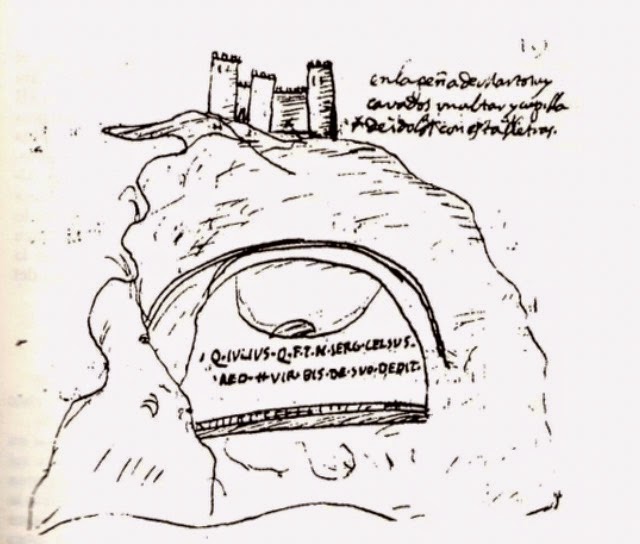 en la peña de Martos ay
cavados un altar y capilla
de idolos con estas letras.
Q·IVLIVS·Q·F·T·N·SERG·CELSUS·
AED·II·VIR·BIS·DE·SVO·DEDIT·